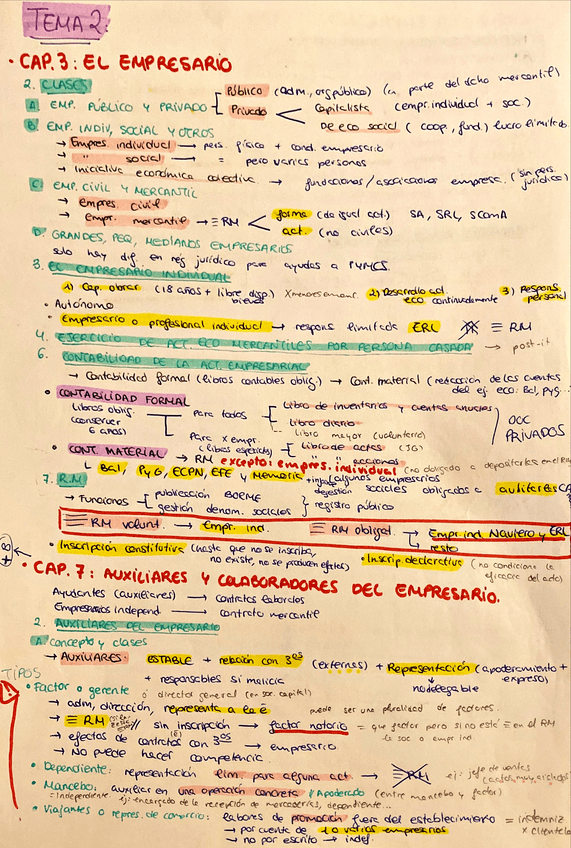 TEMA 2:
• CAP. 3: EL EMPRESARIO
2. CLASES
Público (adm, org público) (n parte del dcho mercantil)
A. EMP. PÚBLICO Y PRIVADO
Privado
Capitalista (empr. individual + soc)
De eco social (coop, fund) lucro limitado
B. EMP. INDIV, SOCIAL Y OTROS
→ Empres individual → pers. físico + cond. empresario
→ " social → = pero varias personas
→ Iniciativa económica colectiva → fundaciones/asociaciones empresa. (sin pers. jurídica)
C. EMP. CIVIL Y MERCANTIL
→ empres civil
→ Empr. mercantil → ≡ RM
forma (da igual act.) SA, SRL, SComA
act. (no civiles)
D. GRANDES, PEQ, MEDIANOS EMPRESARIOS
solo hay dif. en rég jurídico para ayudas a PYMES.
3. EL EMPRESARIO INDIVIDUAL
1) Cap. obrar (18 años + libre disp. bienes) 2) Desarrollo act. eco continuadamente 3) Respons. personal
• Autónomo
• Empresario o profesional individual → respons limitada ERL ≡ RM
4. EJERCICIO DE ACT. ECO MERCANTILES POR PERSONA CASADA → post-it
6. CONTABILIDAD DE LA ACT. EMPRESARIAL
→ Contabilidad formal (libros contables oblig.) → Cont. material (redacción de las cuentas del ej. eco: Bal, PyG...
• CONTABILIDAD FORMAL
Libros oblig. (conservar 6 años)
Para todos
Libro de inventarios y cuentas anuales
Libro diario
Libro mayor (voluntario)
Para x empr. (libros especiales)
Libro de actas (JG)
" " acciones
DOC PRIVADOS
• CONT. MATERIAL → RM excepto: empres. individual (no obligado a depositarlas en el RM)
↳ Bal, PyG, ECPN, EFE y Memoria + inf. de gestión algunos empresarios sociales obligados a auditarlas CA
7. R.M
→ Funciones
publicación BORME
gestión denom. sociales
registro público
≡ RM volunt. → Empr. ind. ≡ RM obligat. → Empr. ind Naviero y ERL
→ resto
• Inscripción constitutiva (hasta que no se inscriba, no existe, no se producen efectos)
• Inscrip. declarativa (no condiciona la eficacia del acto)
• CAP. 7: AUXILIARES Y COLABORADORES DEL EMPRESARIO.
Ayudantes (auxiliares) → contratos laborales
Empresarios independ → contrato mercantil
2. AUXILIARES DEL EMPRESARIO
A. Concepto y clases
→ AUXILIARES: ESTABLE + relación con 3os (externas) + Representación (apoderamiento + expreso)
+ responsables si malicia
no delegable
TIPOS
• Factor o gerente ó director general (en soc. capital)
→ adm, dirección, representa a la ē puede ser una pluralidad de factores
→ ≡ RM sin inscripción → factor notorio = que factor pero si no está ≡ en el RM la soc o empr ind
→ efectos de contratos con 3os → empresario
→ No puede hacer competencia
• Dependiente: representación lim para alguna act → ≡ RM ej: jefe de ventas
• Mancebo: auxiliar en una operación concreta Apoderado (entre mancebo y factor)
= independiente. ej: encargado de la recepción de mercaderías, dependiente...
• Viajantes o repres de comercio: labores de promoción fuera del establecimiento = indemniz x clientela
→ por cuenta de 1 o varios empresarios
→ no por escrito → indef.